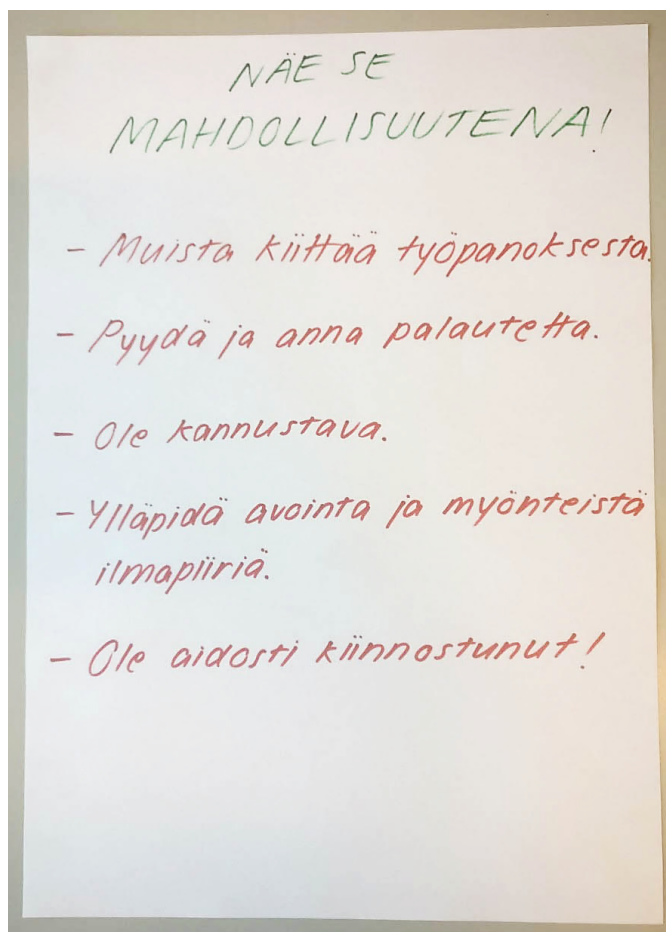 NÄE SE
MAHDOLLISUUTENA!
- Muista kiittää työpanoksesta.
- Pyydä ja anna palautetta.
- Ole kannustava.
- Ylläpidä avointa ja myönteistä
ilmapiiriä.
- Ole aidosti kiinnostunut!